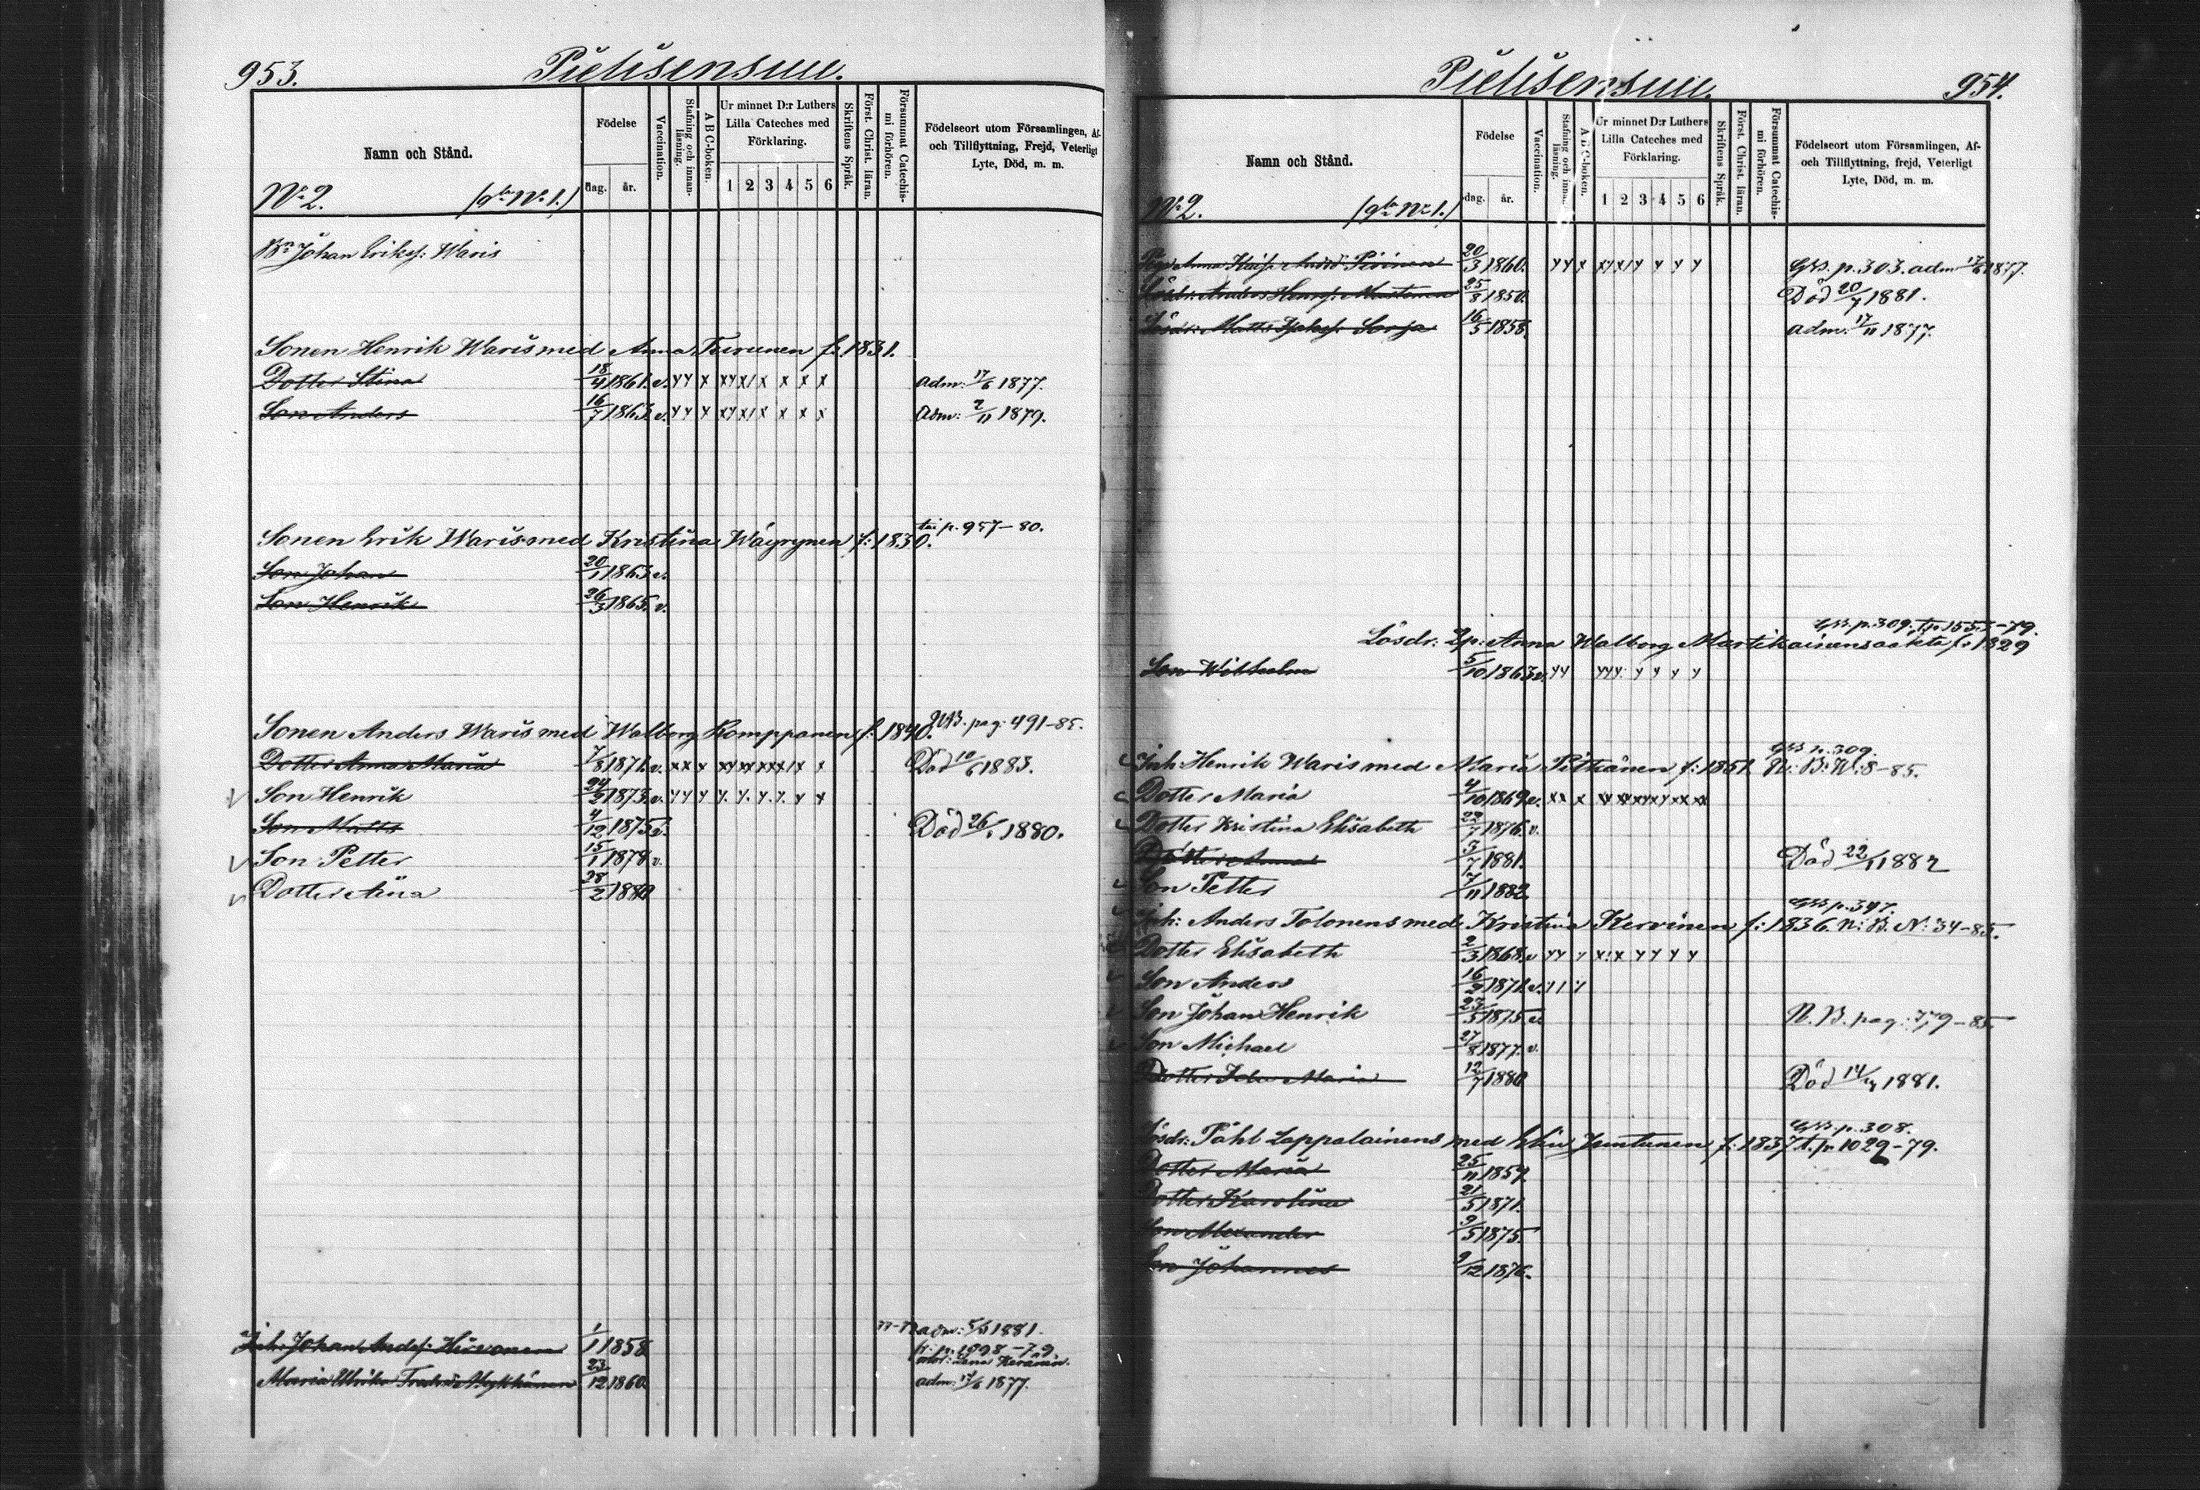 953.
Namn och Stånd.
Födelse
dag. år.
Vaccination.
Stafning och innanläsning.
A B C-boken.
Ur minnet D:r Luthers Lilla Cateches med Förklaring.
1 2 3 4 5 6
Skriftens Språk.
Först. Christ. läran.
Försummat Catechismi förhören.
Födelseort utom Församlingen, Af- och Tillflyttning, Frejd, Veterligt Lyte, Död, m. m.
No 2. (gla No 1.)
Johan Eriks: Waris
Sonen Henrik Waris med Anna f: 1831.
Dotter Stina 18/4 1861. v. adm: 17/6 1877.
Son Anders 16/7 1863. v. Adm: 2/11 1879.
Sonen Erik Waris med Kristina Wäyrynen f: 1830. p. 957-80.
Son Johan 20/1 1863 v.
Son Henrik 26/3 1865. v.
Sonen Anders Waris med Walborg Komppanen f: 1840. pag: 491-85.
Dotter Anna Maria 7/3 1871. v. Död 10/6 1883.
Son Henrik 24/2 1873. v.
Son Matts 4/12 1875 v. Död 26/1 1880.
Son Petter 15/1 1878 v.
Dotter 28/2 1880
adm: 5/6 1881.
Inh: Johan Anders: Hirvonen 1/1 1858
Maria Ulrika Fredr:d Mykkänen 23/12 1860. adm: 17/6 1877.
954.
Namn och Stånd.
Födelse
dag. år.
Vaccination.
Stafning och innanläsning.
A B C-boken.
Ur minnet D:r Luthers Lilla Cateches med Förklaring.
1 2 3 4 5 6
Skriftens Språk.
Först. Christ. läran.
Försummat Catechismi förhören.
Födelseort utom Församlingen, Af- och Tillflyttning, frejd, Veterligt Lyte, Död, m. m.
No 2. (gla No 1.)
Anna Andrd: Piirinen 20/3 1860. p. 303. adm 17/6 1877.
Lösdr: Anders Henrs: 25/8 1850. Död 20/7 1881.
Lösdr: Matts Sorja 16/5 1858. adm: 17/11 1877.
p. 309.
Lösdr: Anna Walborg f: 1829
Son Wilhelm 5/10 1863 v.
p. 309.
Inh: Henrik Waris med Maria Pitkänen f: 1851
Dotter Maria 4/10 1869. v.
Dotter Kristina Elisabeth 22/7 1876. v.
Dotter Anna 5/7 1881. Död 22/1 1882
Son Petter 7/11 1882.
p. 347.
Inh: Anders Tolonens med Kristina Kervinen f: 1836. N: B. N: 34-85.
Dotter Elisabeth 2/3 1868. v
Son Anders 16/2 1871. v.
Son Johan Henrik 23/5 1875. v. N. B. pag: 779-85.
Son Michael 27/8 1877. v.
Dotter Ida Maria 12/7 1880 Död 1881.
p. 308.
Lösdr: Påhl Lappalainens med Juntunen f: 1837 t. p. 1029-79.
Dotter Maria 25/11 1859.
Dotter Karolina 21/5 1871.
Son Alexander 9/5 1875.
Son Johannes 9/12 1876.